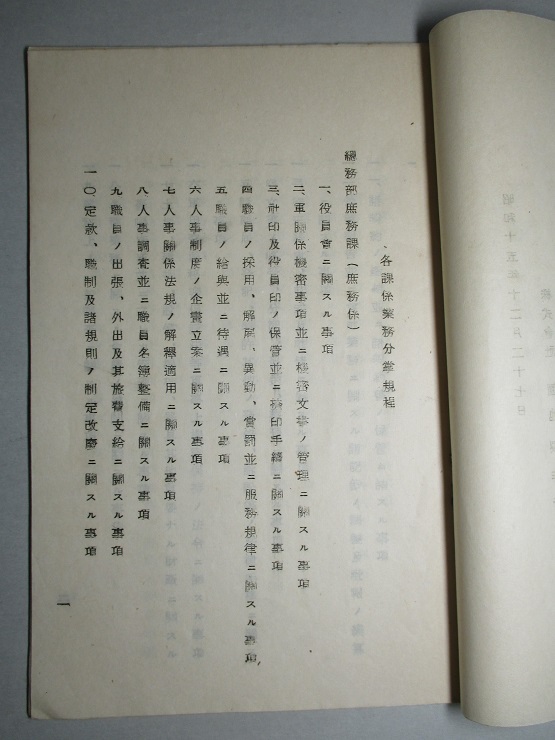 各課係業務分掌規程
總務部庶務課(庶務係)
一、役員會ニ關スル事項
二、軍關係機密事項並ニ機密文書ノ管理ニ關スル事項
三、社印及役員印ノ保管並ニ捺印手續ニ關スル事項
四 職員ノ採用、解雇、異動、賞罰並ニ服務規律ニ關スル事項
五 職員ノ給與並ニ待遇ニ關スル事項
六 人事制度ノ企畫立案ニ關スル事項
七 人事關係法規ノ解釋適用ニ關スル事項
八 人事調査並ニ職員名簿整備ニ關スル事項
九 職員ノ出張、外出及其旅費支給ニ關スル事項
一〇 定款、職制及諸規則ノ制定改廢ニ關スル事項
一
昭和十五年十二月二十七日